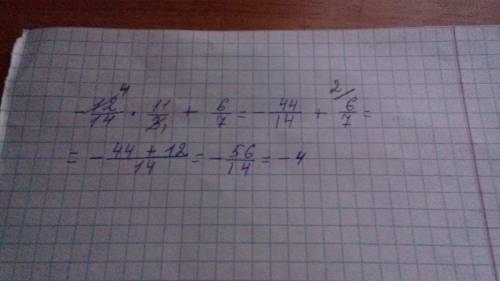 - 12/14 4 · 11/3 1 + 6/7 = - 44/14 + 2/ 6/7 =
= - 44 + 12/14 = - 56/14 = - 4